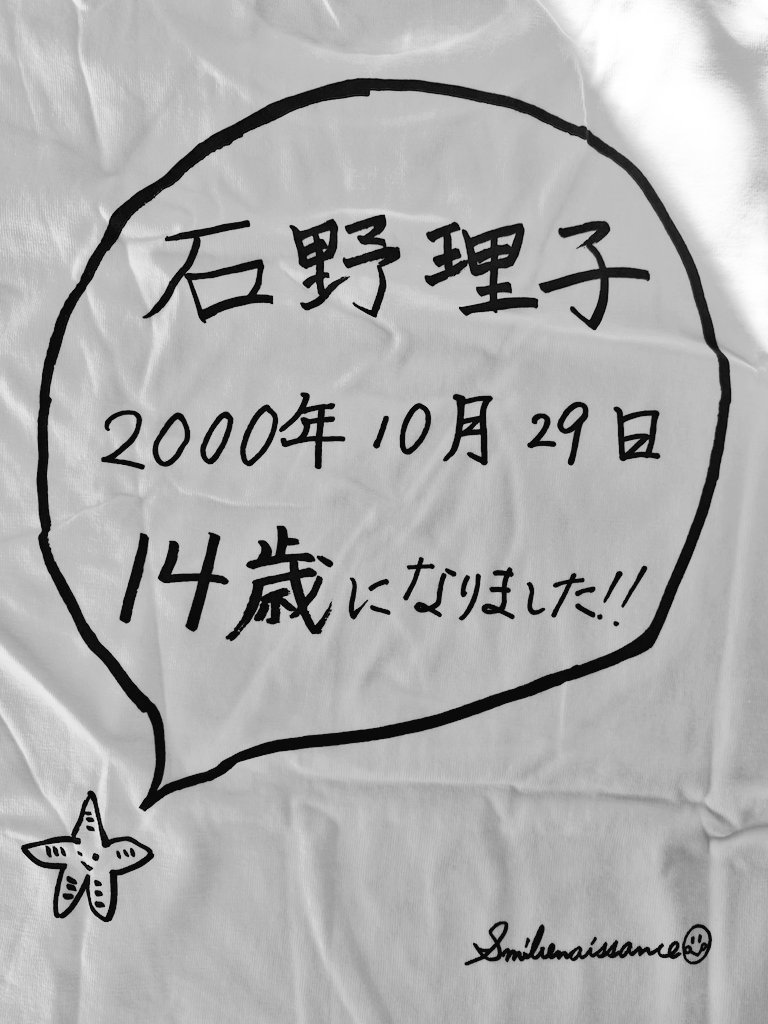 石野理子
2000年10月29日
14歳になりました!!
Smilenaissance